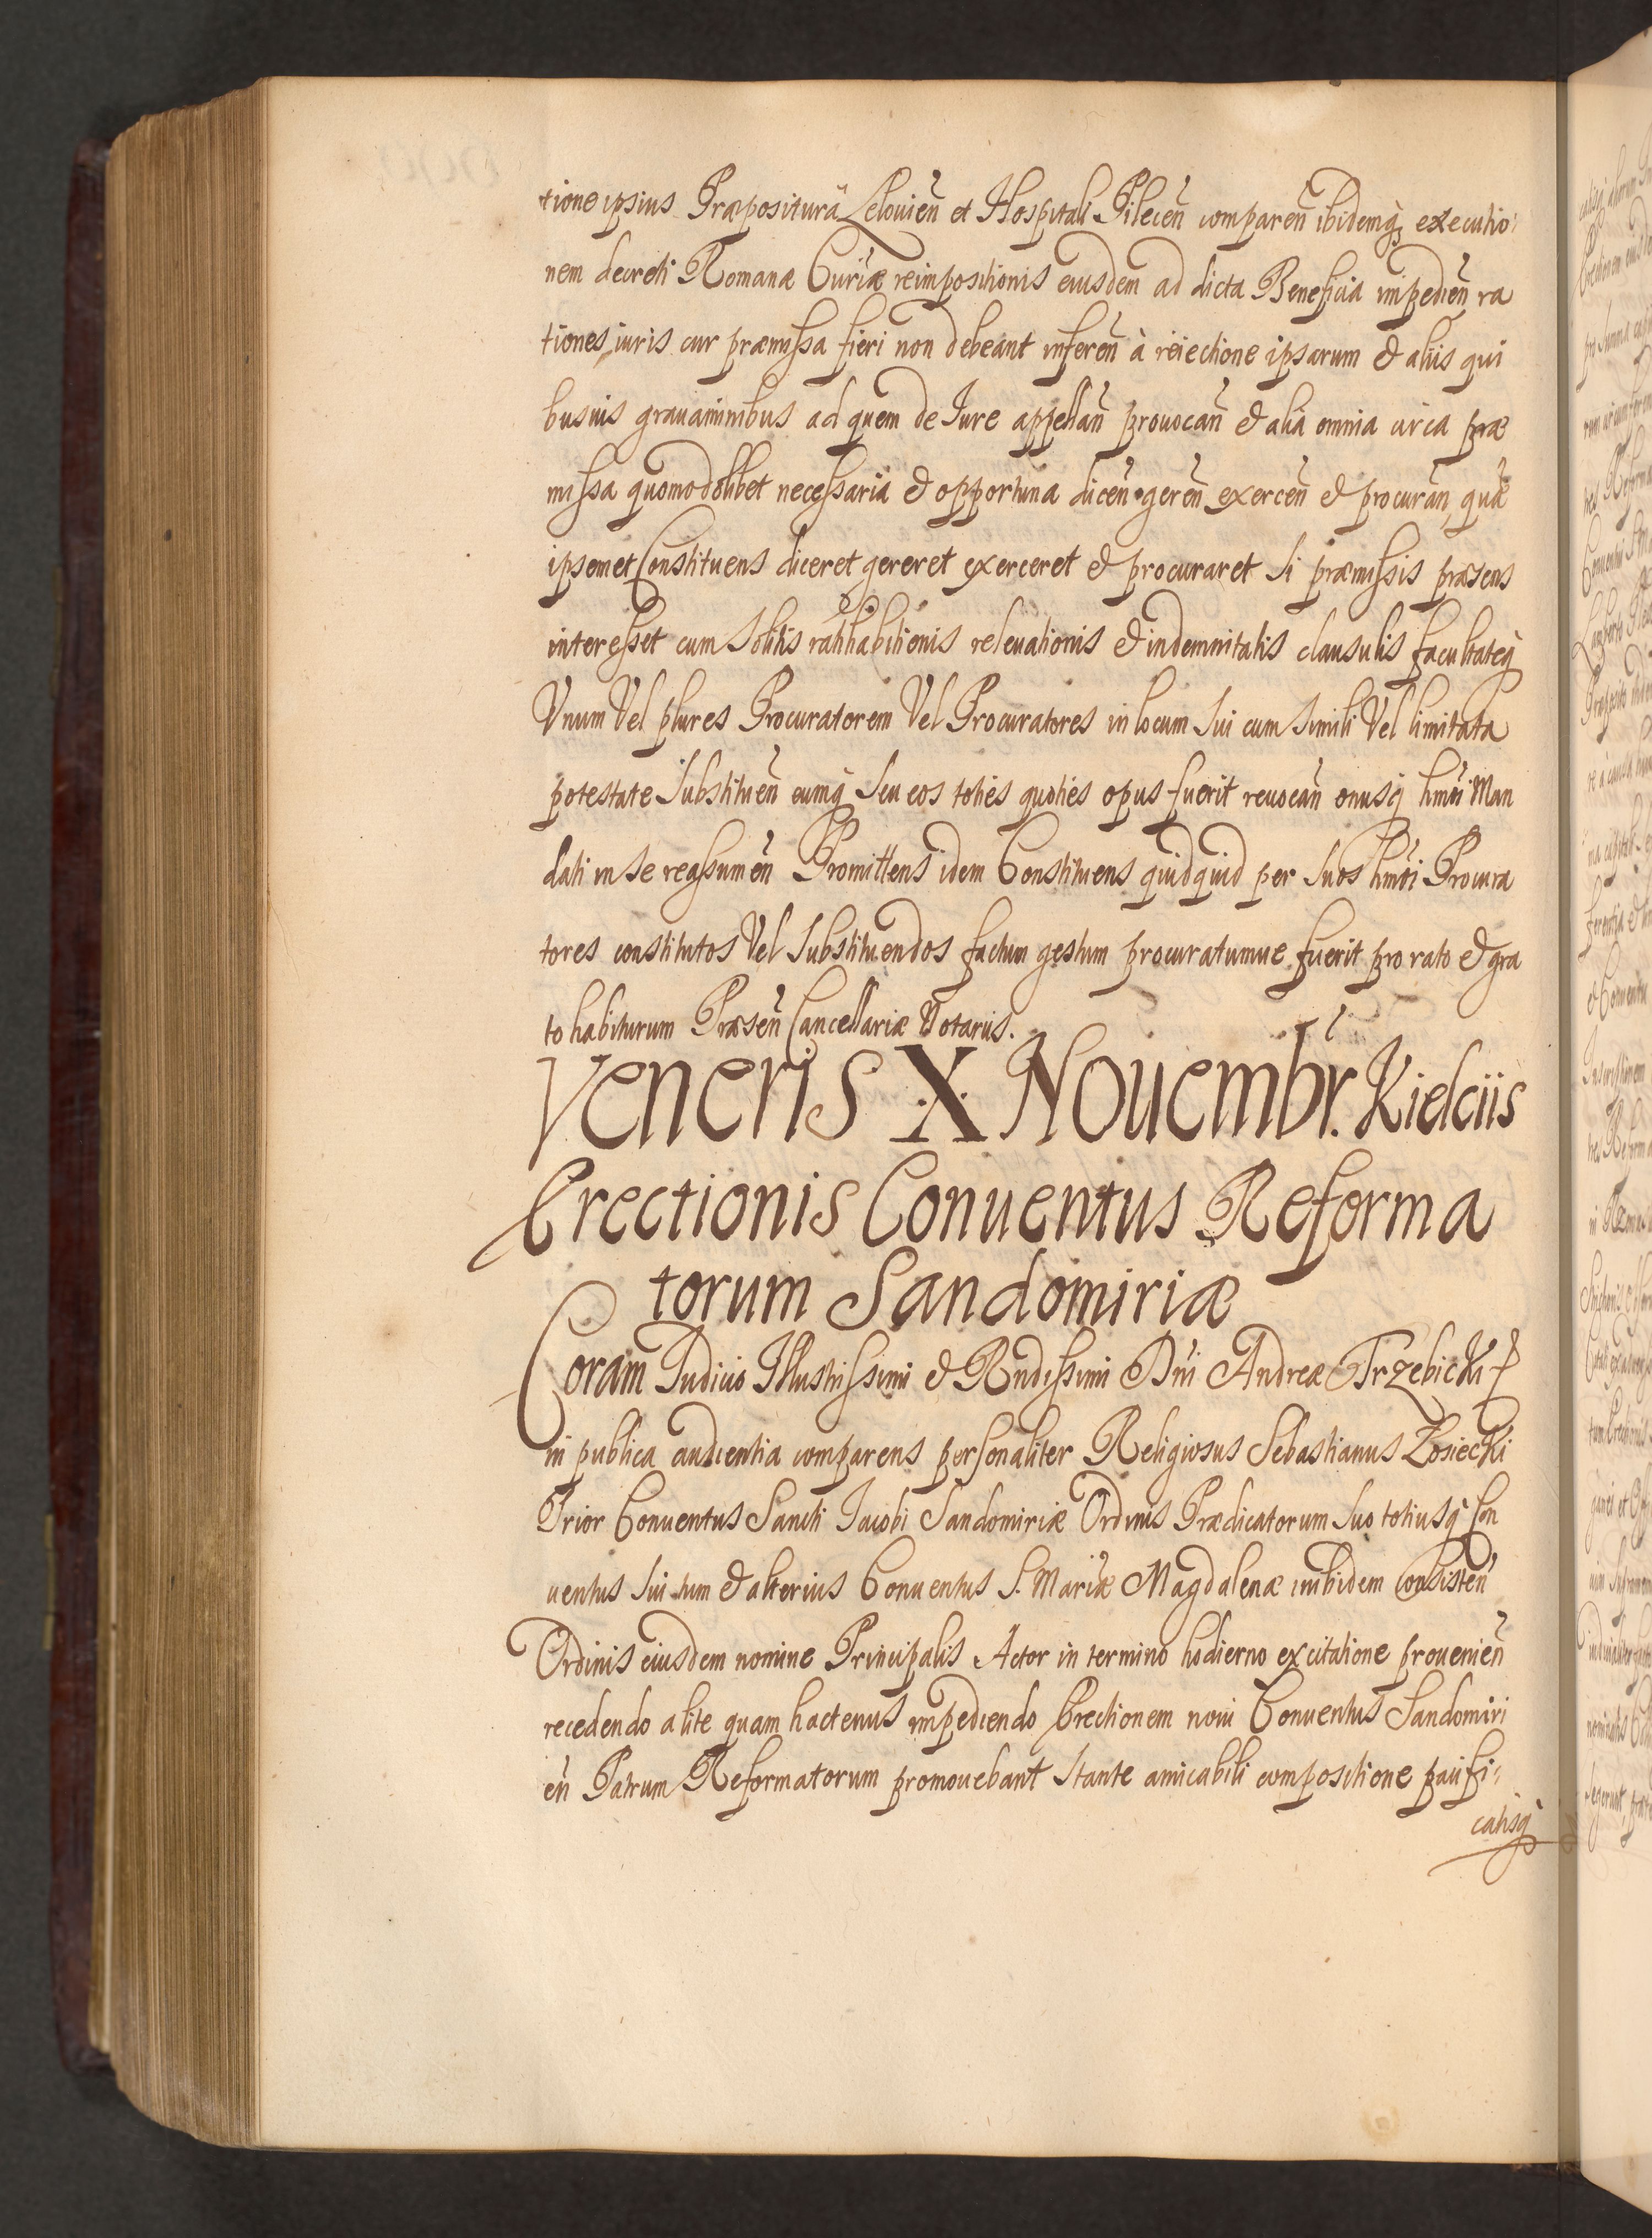 tione ipsius Præpositurã Lelouień et Hospitali Pilecen̄ comparen̄ ibidemq̨ executio:
nem decreti Romanæ Curiæ reimpositionis eiusdem ad dicta Beneficia impedien̄ ra
tiones iuris cur præmissa fieri non debeant inferen̄ à reiectione ipsarum & aliis qui
busuis grauaminibus ad quem de Iure appellan̄ prouocan̄ & alia omnia circa præ
missa quomodolibet necessaria & opportuna dicen̄ geren̄ exercen̄ & procuran̄, quæ
ipsemet Constituens diceret gereret exerceret & procuraret si præmissis præsens
interesset cum solitis ratihabitionis releuationis & indemnitatis clausulis facultateq̨
Vnum Vel plures Procuratorem Vel Procuratores in locum sui cum simili Vel limitata
potestate substituen̄ eumq̨ seu eos toties quoties opus fuerit reuocan̄ onusq̨ hmōi Man
dati in se reassumen̄ Promittens idem Constituens quidquid per suos hmōi Procura
tores constitutos Vel substituendos factum gestum procuratumue fuerit pro rato & gra
to habiturum Præsen̄ Cancellariæ Notariis.
Veneris X Nouembr. Kielciis
Erectionis Conuentus Reforma
torum Sandomiriæ
Coram Iudicio Illustrissimi & Rndissimi Dni Andreæ Trzebicki
in publica audientia comparens personaliter Religiosus Sebastianus Łosiecki
Prior Conuentus Sancti Jacobi Sandomiriæ Ordinis Prædicatorum suo totiusq̨ Con
uentus sui tum & alterius Conuentus S. Mariæ Magdalenæ inibidem consisten̄
Ordinis eiusdem nomine Principalis Actor in termino hodierno ex citatione prouenien̄
recedendo a lite quam hactenus impediendo Erectionem noui Conuentus Sandomiri
en̄ Patrum Reformatorum promouebant stante amicabili compositione pacifi:
catisq̨